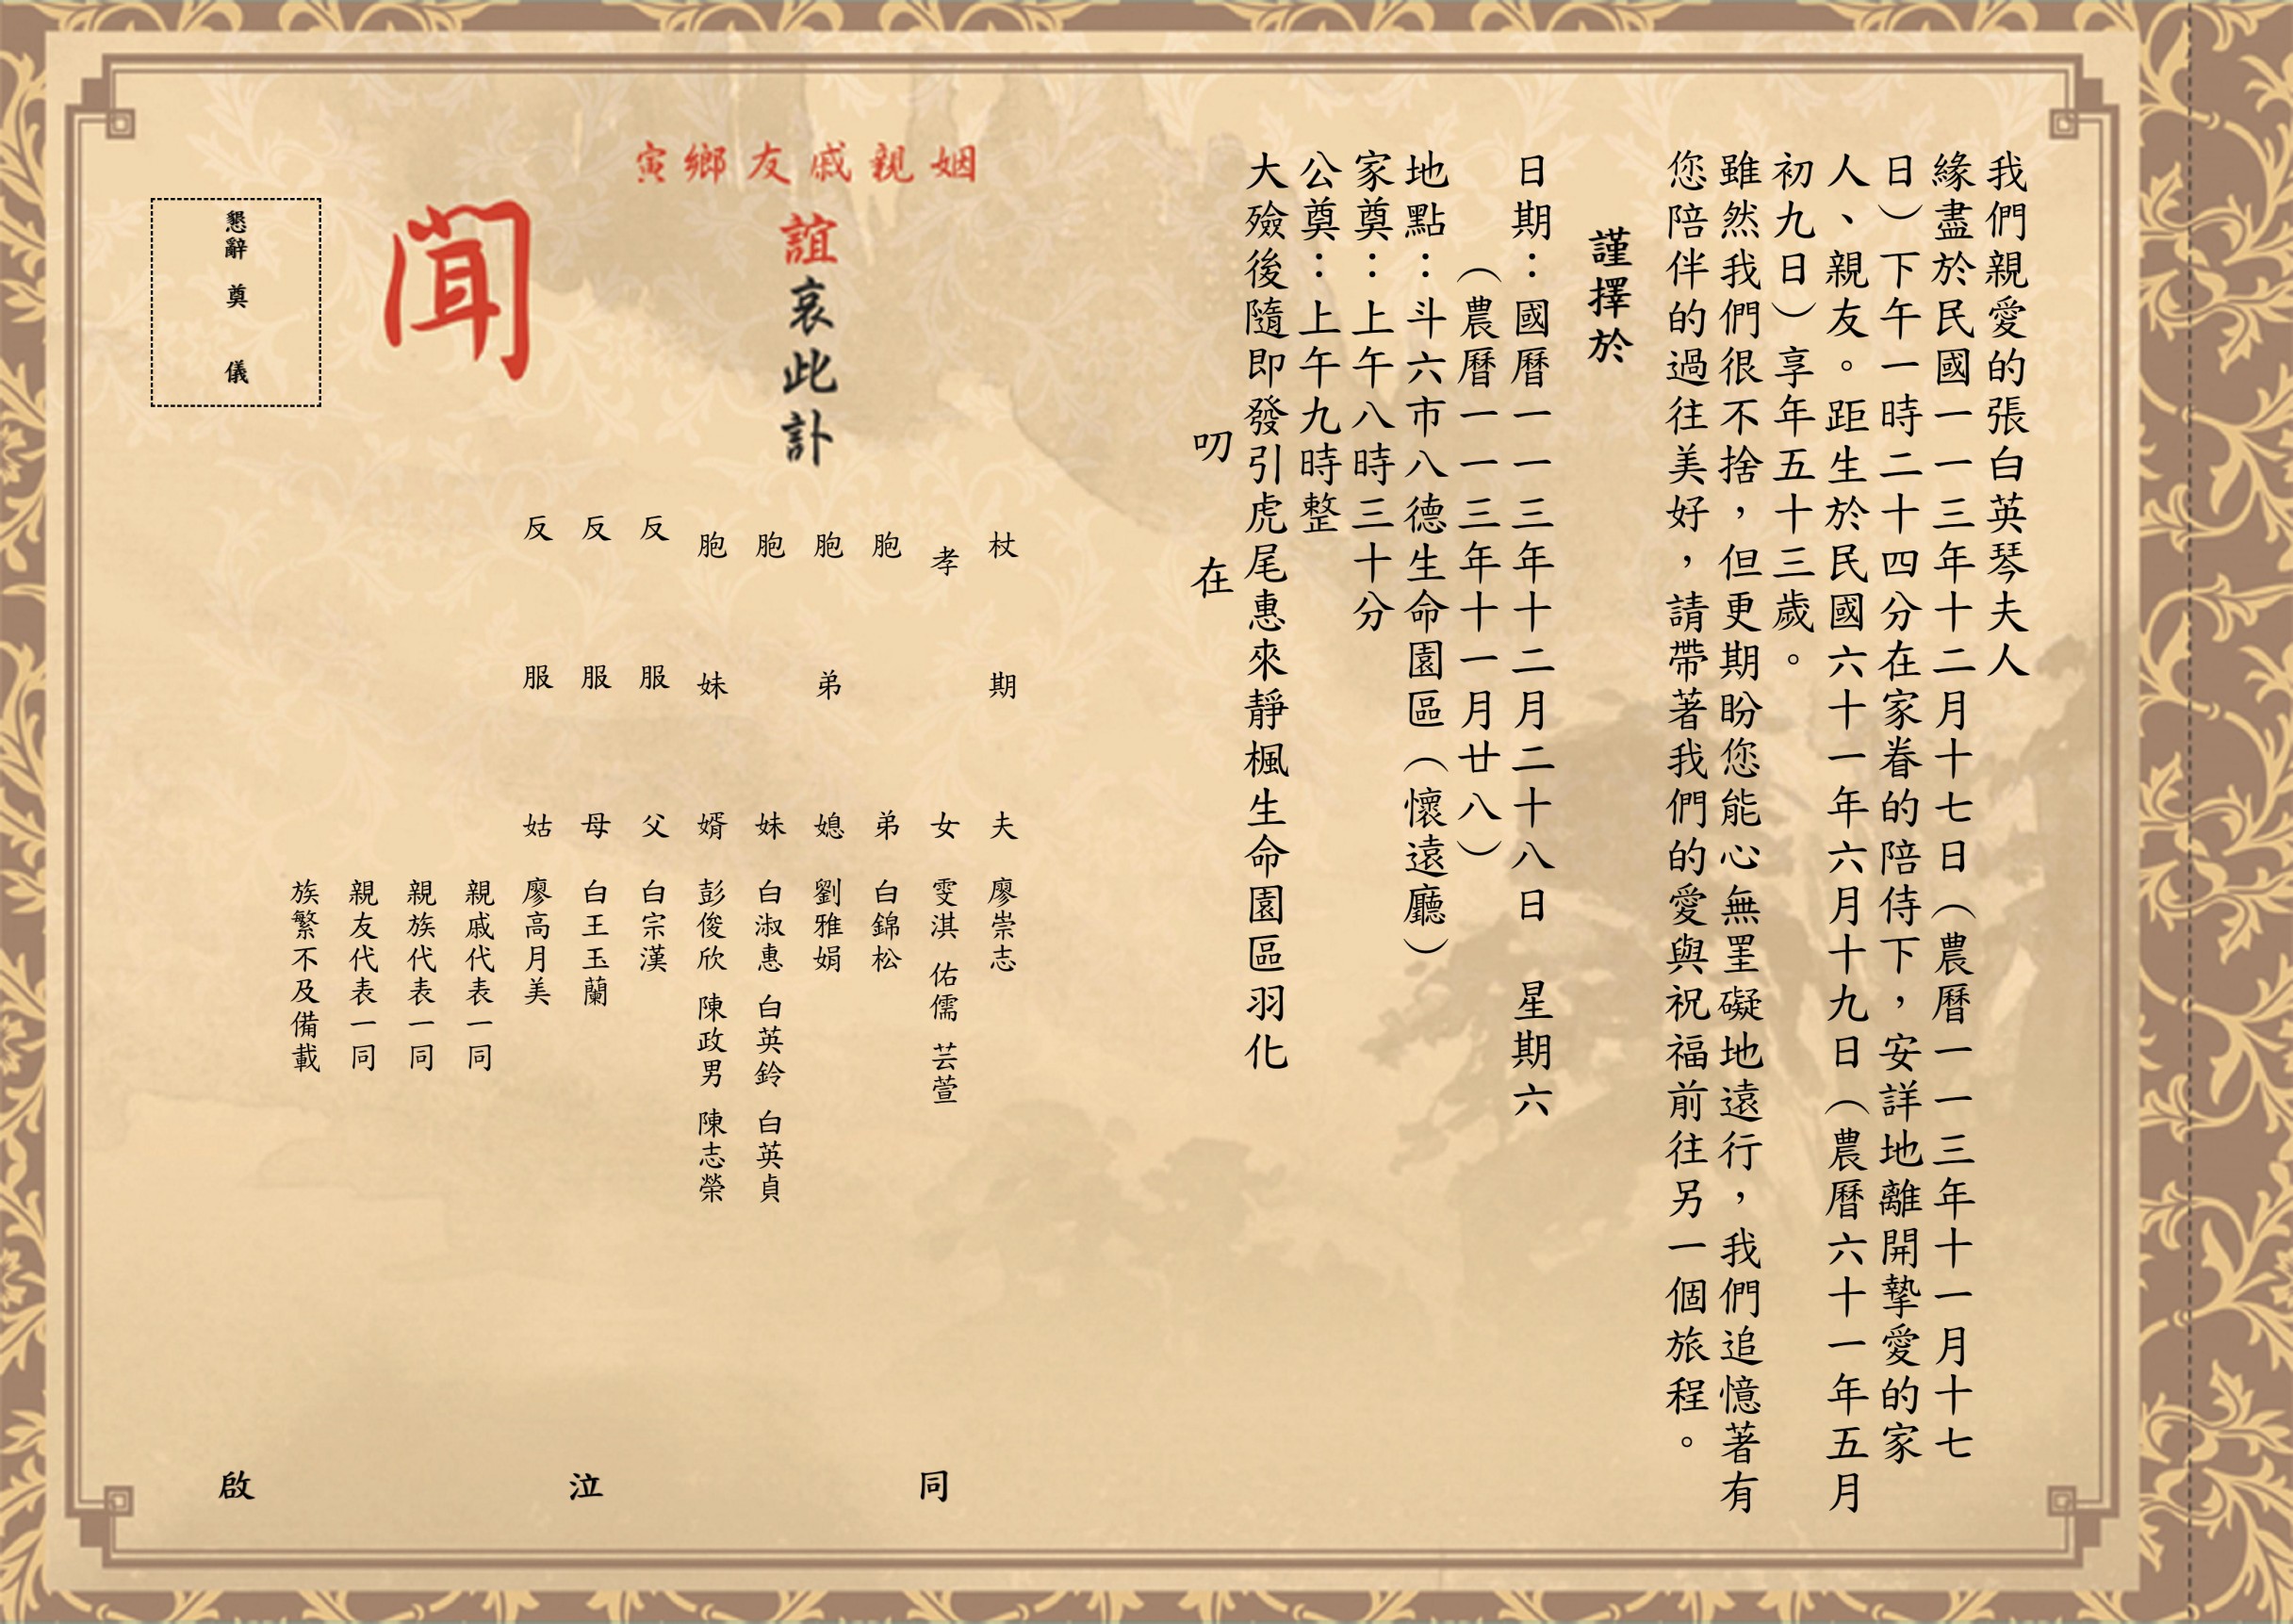 我們親愛的張白英琴夫人
緣盡於民國一一三年十二月十七日（農曆一一三年十一月十七
日）下午一時二十四分在家眷的陪侍下，安詳地離開摯愛的家
人、親友。距生於民國六十一年六月十九日（農曆六十一年五月
初九日）享年五十三歲。
雖然我們很不捨，但更期盼您能心無罣礙地遠行，我們追憶著有
您陪伴的過往美好，請帶著我們的愛與祝福前往另一個旅程。
謹擇於
日期：國曆一一三年十二月二十八日 星期六
（農曆一一三年十一月廿八）
地點：斗六市八德生命園區（懷遠廳）
家奠：上午八時三十分
公奠：上午九時整
大殮後隨即發引虎尾惠來靜楓生命園區羽化
叨 在
姻親戚友鄉寅
誼哀此訃
聞
懇辭 奠 儀
杖期夫 廖崇志
孝女 雯淇 佑儒 芸萱
胞弟 白錦松
胞弟媳 劉雅娟
胞妹 白淑惠 白英鈴 白英貞
胞妹婿 彭俊欣 陳政男 陳志榮
反服父 白宗漢
反服母 白王玉蘭
反服姑 廖高月美
親戚代表一同
親族代表一同
親友代表一同
族繁不及備載
同 泣 啟